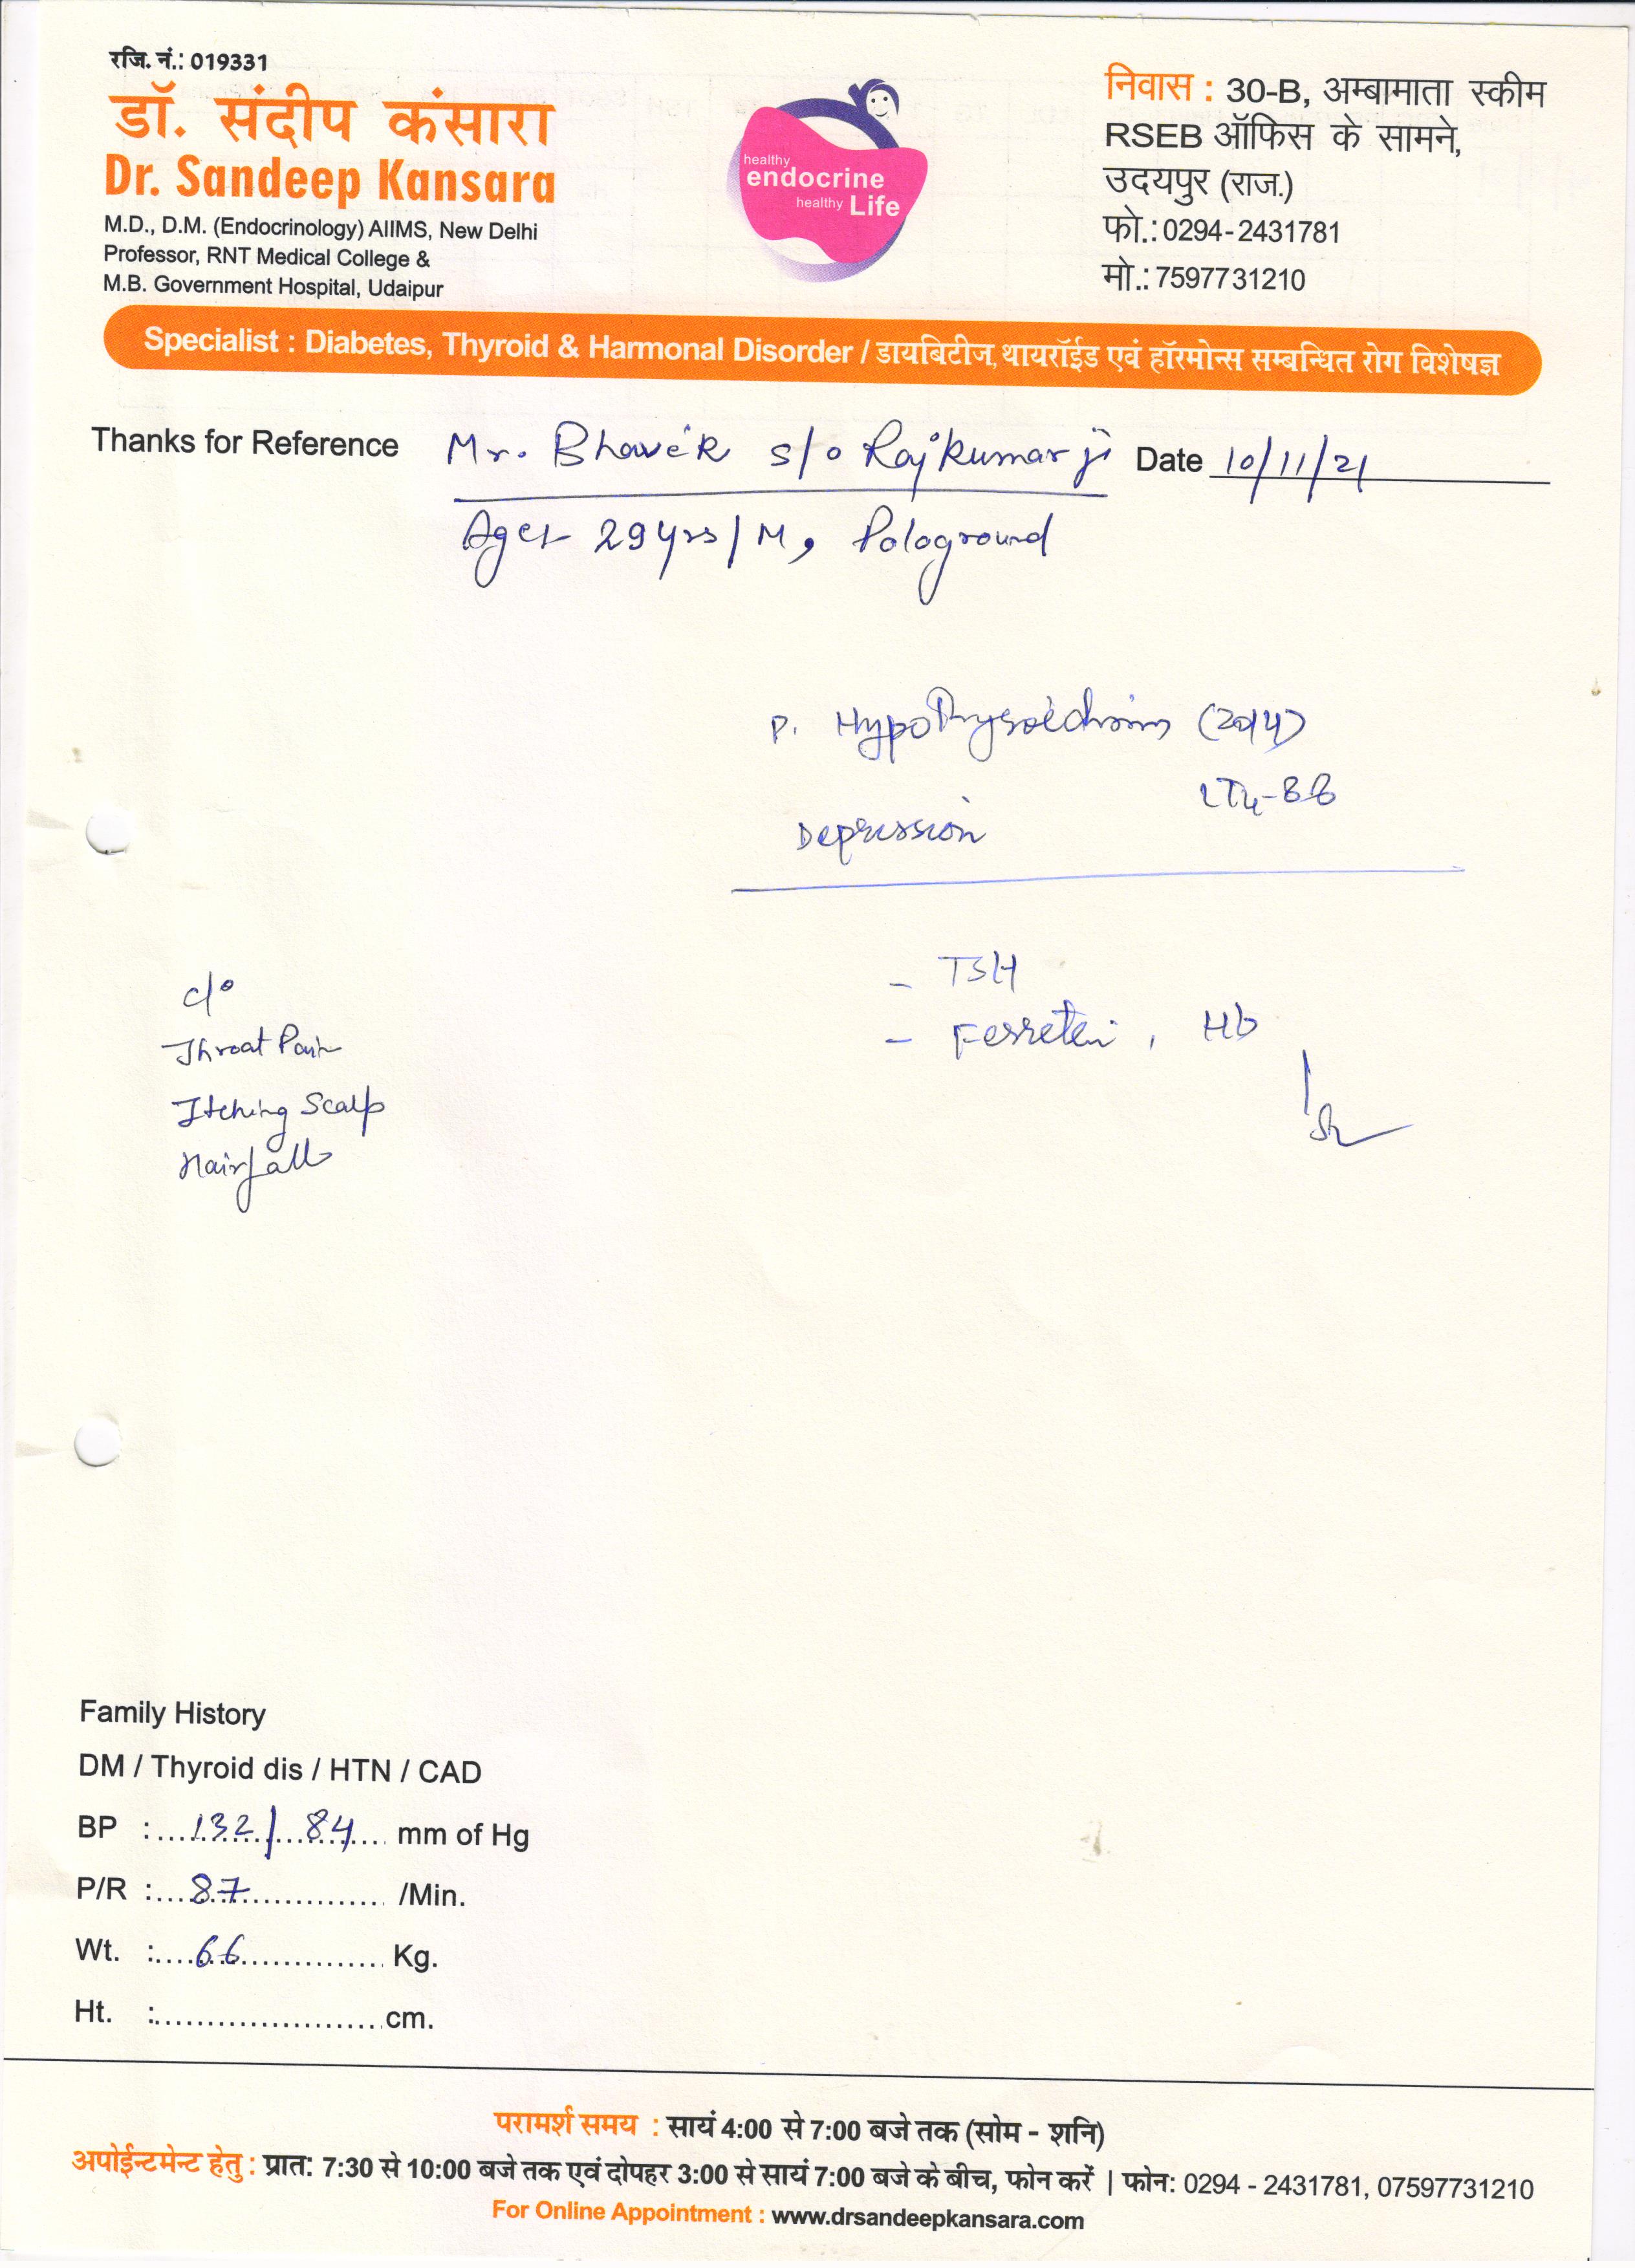 रजि. नं.: 019331
डॉ. संदीप कंसारा
Dr. Sandeep Kansara
M.D., D.M. (Endocrinology) AIIMS, New Delhi
Professor, RNT Medical College &
M.B. Government Hospital, Udaipur
healthy
endocrine
healthy Life
निवास : 30-B, अम्बामाता स्कीम
RSEB ऑफिस के सामने,
उदयपुर (राज.)
फो.: 0294-2431781
मो.: 7597731210
Specialist : Diabetes, Thyroid & Harmonal Disorder / डायबिटीज, थायरॉईड एवं हॉरमोन्स सम्बन्धित रोग विशेषज्ञ
Thanks for Reference Mr. Bhavik s/o Rajkumar ji Date 10/11/21
Age 29 yrs / M, Pologround
P. Hypothyroidism (2014)
LT4-88
Depression
- TSH
- Ferritin, Hb
c/o
Throat Pain
Itching Scalp
Hairfall
Family History
DM / Thyroid dis / HTN / CAD
BP : 132/84 mm of Hg
P/R : 87 /Min.
Wt. : 66 Kg.
Ht. : cm.
परामर्श समय : सायं 4:00 से 7:00 बजे तक (सोम - शनि)
अपोईन्टमेन्ट हेतु : प्रात: 7:30 से 10:00 बजे तक एवं दोपहर 3:00 से सायं 7:00 बजे के बीच, फोन करें | फोन: 0294 - 2431781, 07597731210
For Online Appointment : www.drsandeepkansara.com